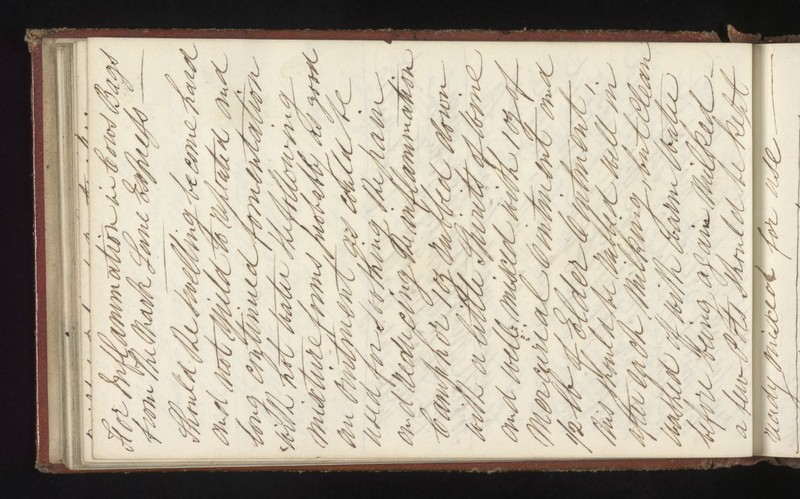 For Inflammation in Cows Bags
from The Mark Lane Express —
Should the swelling become hard
and not yield to repeated and
long continued fomentation
with hot water the following
mixture forms probably as good
an ointment as could be
used for soothing the pain
and reducing the inflammation
Camphor 1 oz rubbed down
with a little Spirits of Wine
and well mixed with 1 oz of
Mercurial Ointment and
½ lb of Elder Ointment,
this should be rubbed well in
after each milking, but clean
washed off with warm water
before being again Milked
a few Pots should be kept
ready mixed for use —